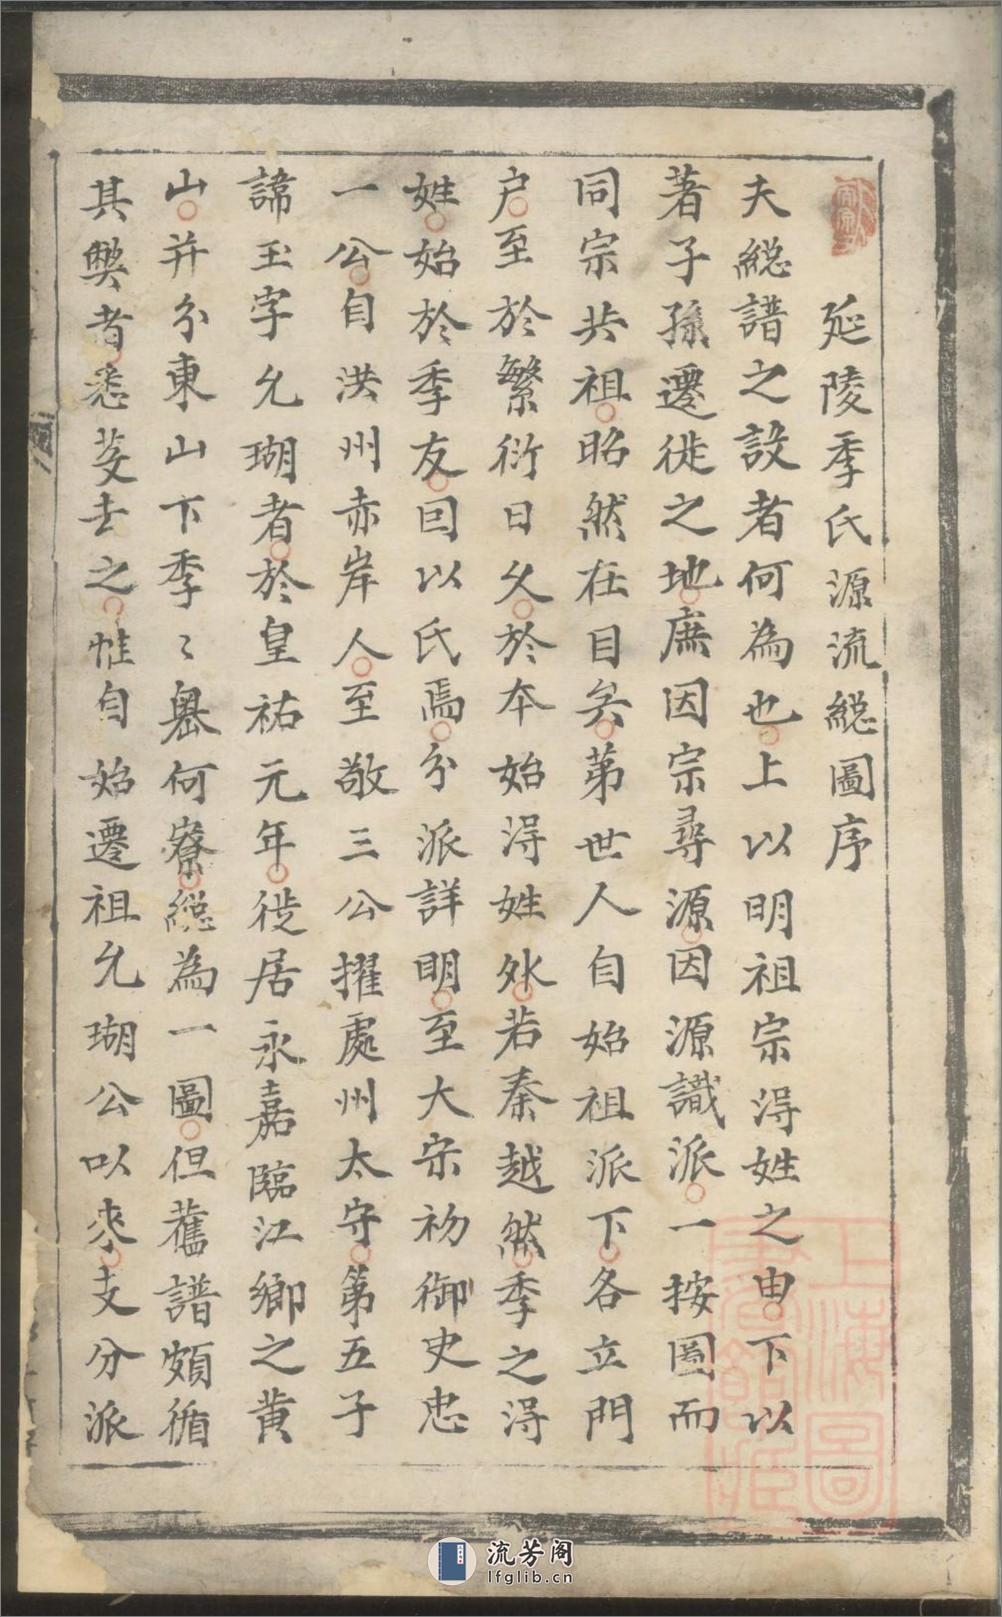 延陵季氏源流緫圖序
夫緫譜之設者何為也上以明祖宗淂姓之由下以
著子孫遷徙之地庶因宗尋源因源識派一按圖而
同宗共祖昭然在目矣第世人自始祖派下各立門
户至於繁衍日久於本始淂姓外若秦越然季之淂
姓始於季友囙以氏焉分派詳明至大宋初御史忠
一公自洪州赤岸人至敬三公擢處州太守第五子
諱玉字允瑚者於皇祐元年徙居永嘉臨江鄉之黃
山并分東山下季〻嶴何寮緫為一圖但舊譜頗循
其獘者悉芟去之惟自始遷祖允瑚公以来支分派
上海圖書館藏
流芳阁
lfglib.cn